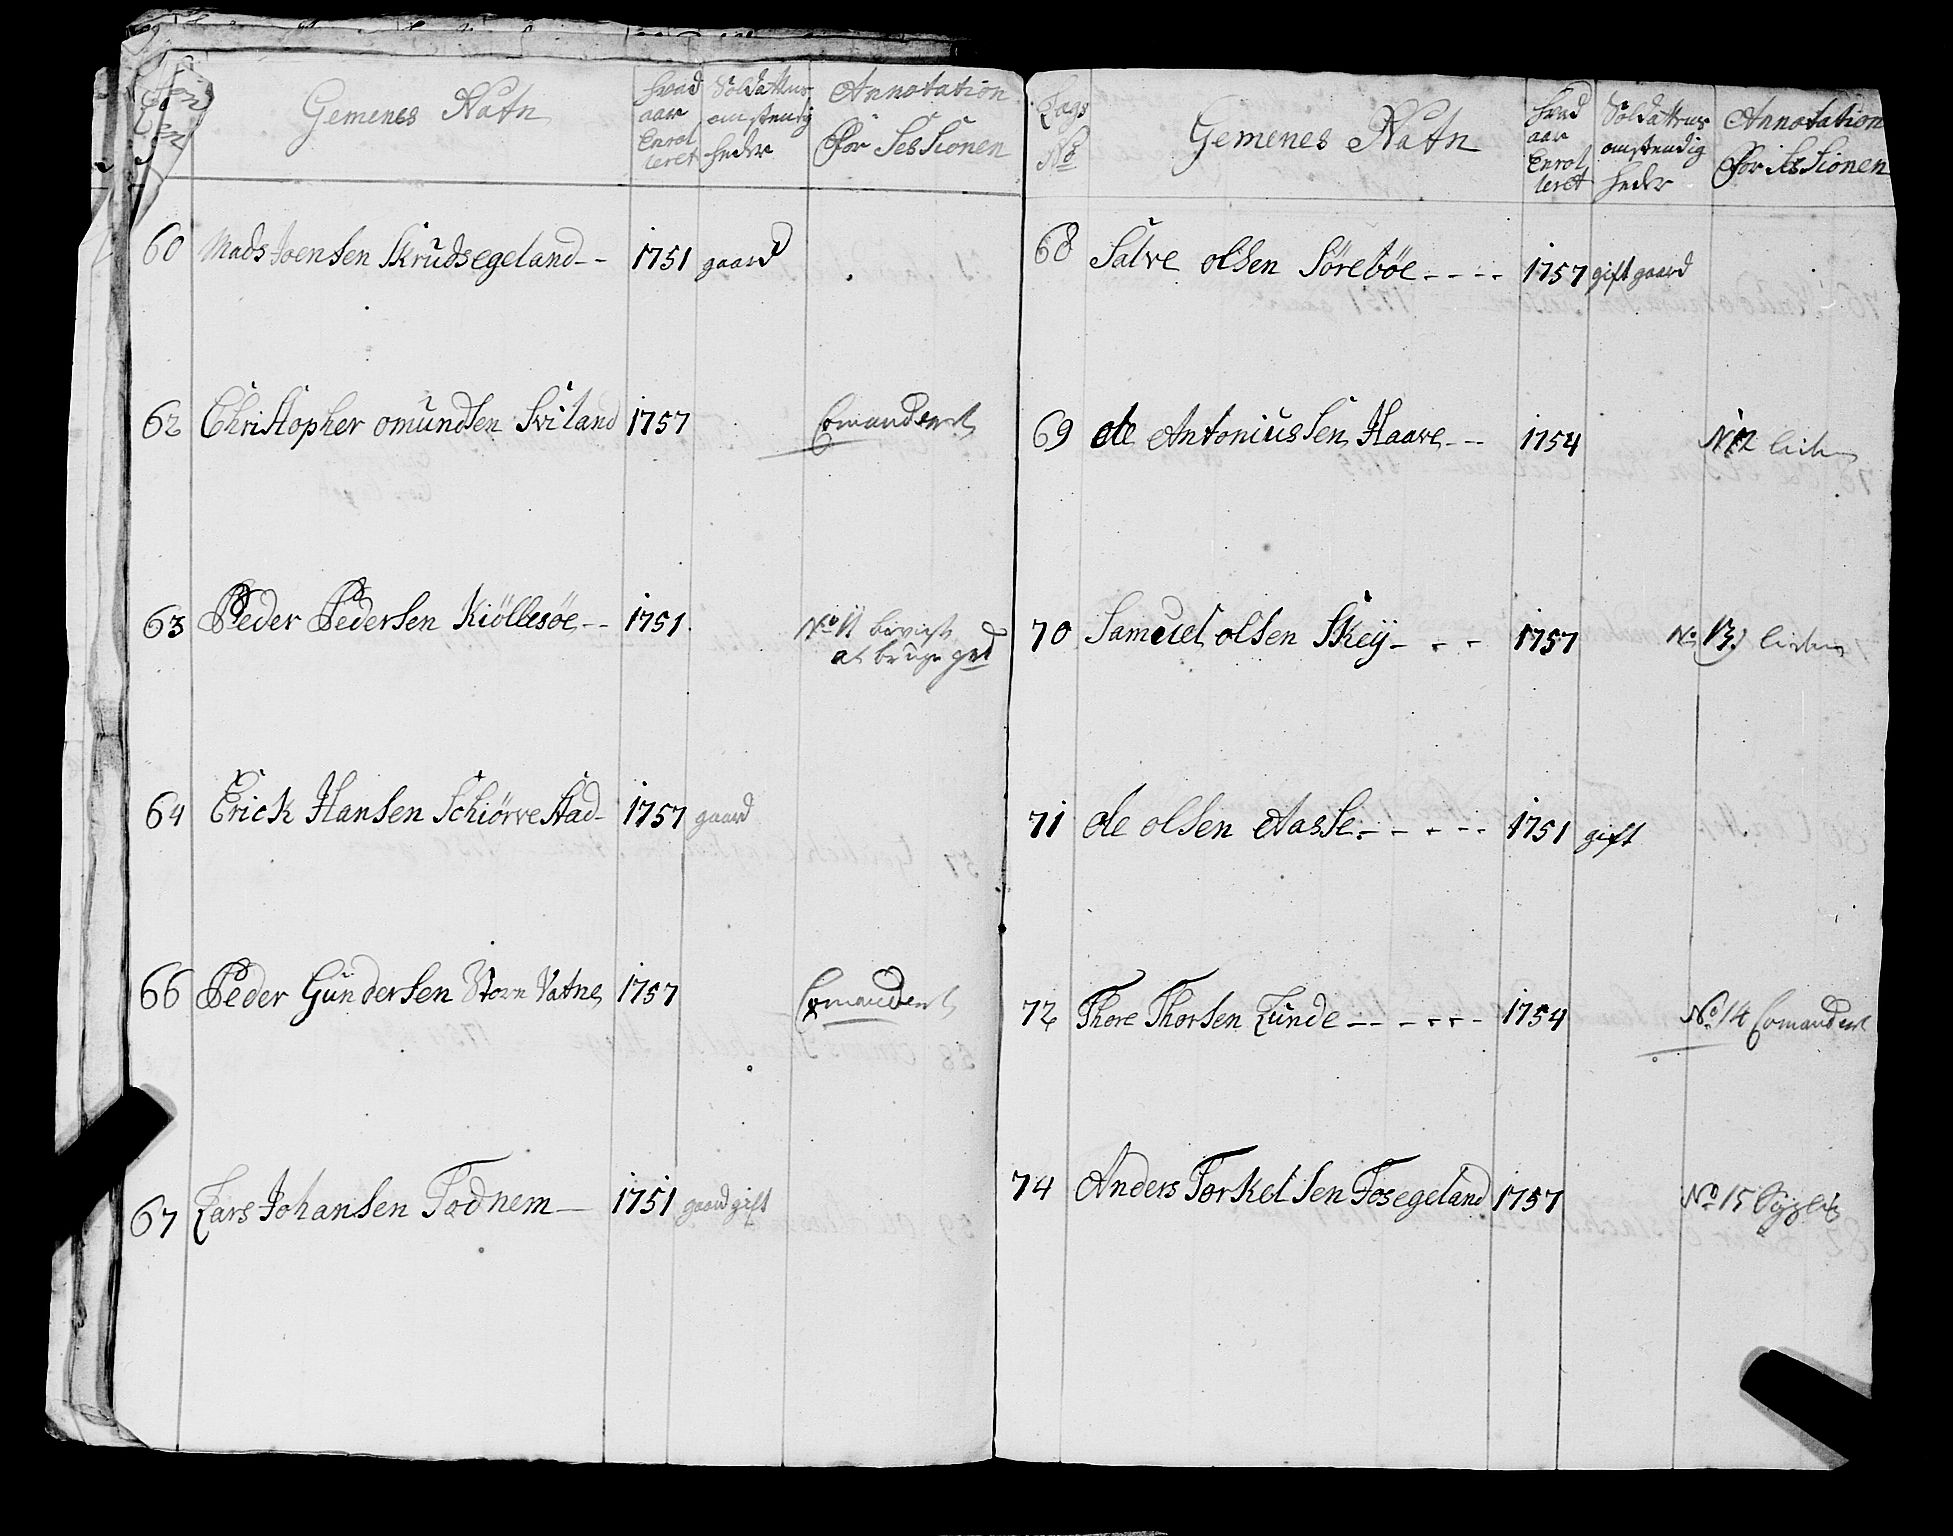 Gemenes Nafn
hvad aar Enrolleret
Soldattens omstendigheder
Annotation For Sessionen
60 Mads Joensen Skrudsegeland-- 1751 gaard
62 Christopher omundsen Sviland 1757 Comandert
63 Peder Pedersen Kiöllesöe-- 1751. No 11 bevigt
at bruge grd
64 Erick Hansen Schiörvestad- 1757 gaard
66 Peder Gündersen Storn Vatne 1757 Comandert
67 Lars Johansen Todnem— 1751 gaard gift
Lægs No
Gemenes Nafn
hvad aar Enrolleret
Soldattens omstendigheder
Annotation For Sessionen
68 Salve olsen Söreböe---- 1757 gift gaard
69 ole Antoniussen Haave--- 1754 N12 liden
70 Samuel olsen Skeÿ- - - 1757 No 13) liden
71 ole olsen Aasse----- 1751 gift
72 Thore Thorsen Lunde------ 1754 No 14 Comandert
74 Anders Torkelsen Fosegeland 1757 No 15